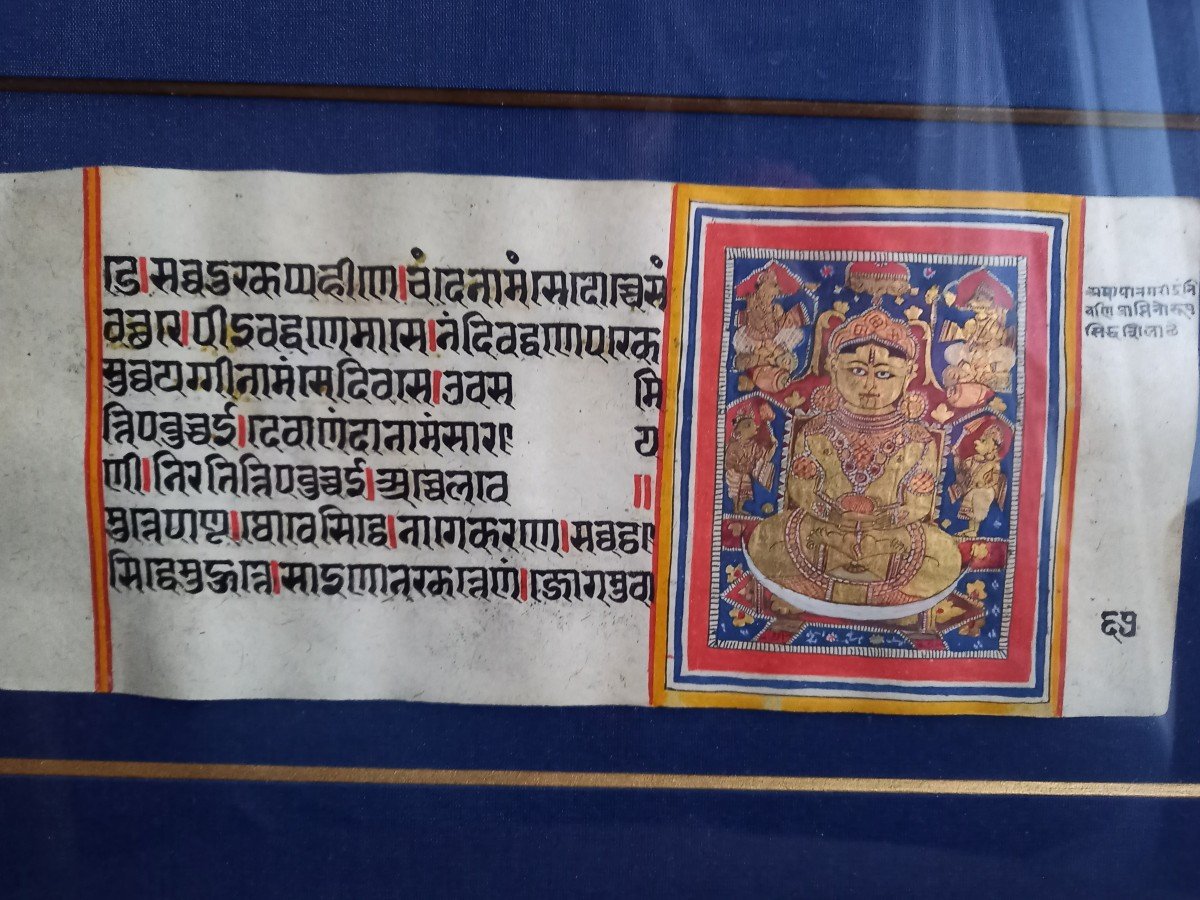 डे।सव्वदुरकप्पहीणे।चंदे नामं से दोच्चे सं
वच्छरे।पीइवद्धणे मासे।नंदिवद्धणे परके
सुव्वयग्गी नामं से दिवसे।उवसमि
त्तिपवुच्चई।देवाणंदा नामं सा रय
णी।निरतित्तिपवुच्चई।अच्चेलवे
मुत्तेपाणू।थोवे सिद्धे।नागे करणे।सव्वट्ठ
सिद्धेमुहुत्ते।साइणा नरकत्तेणं।जोगमुवा